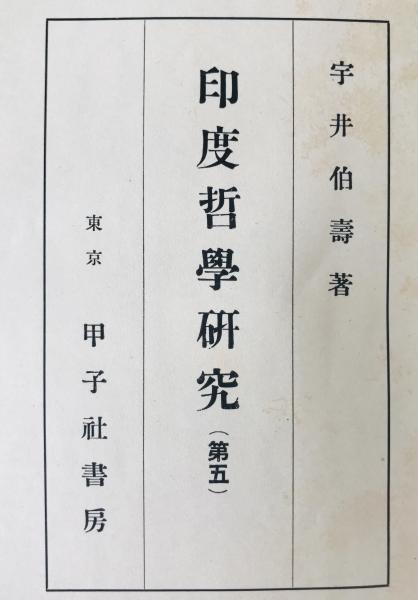 宇井伯壽著
印度哲學研究(第五)
東京 甲子社書房